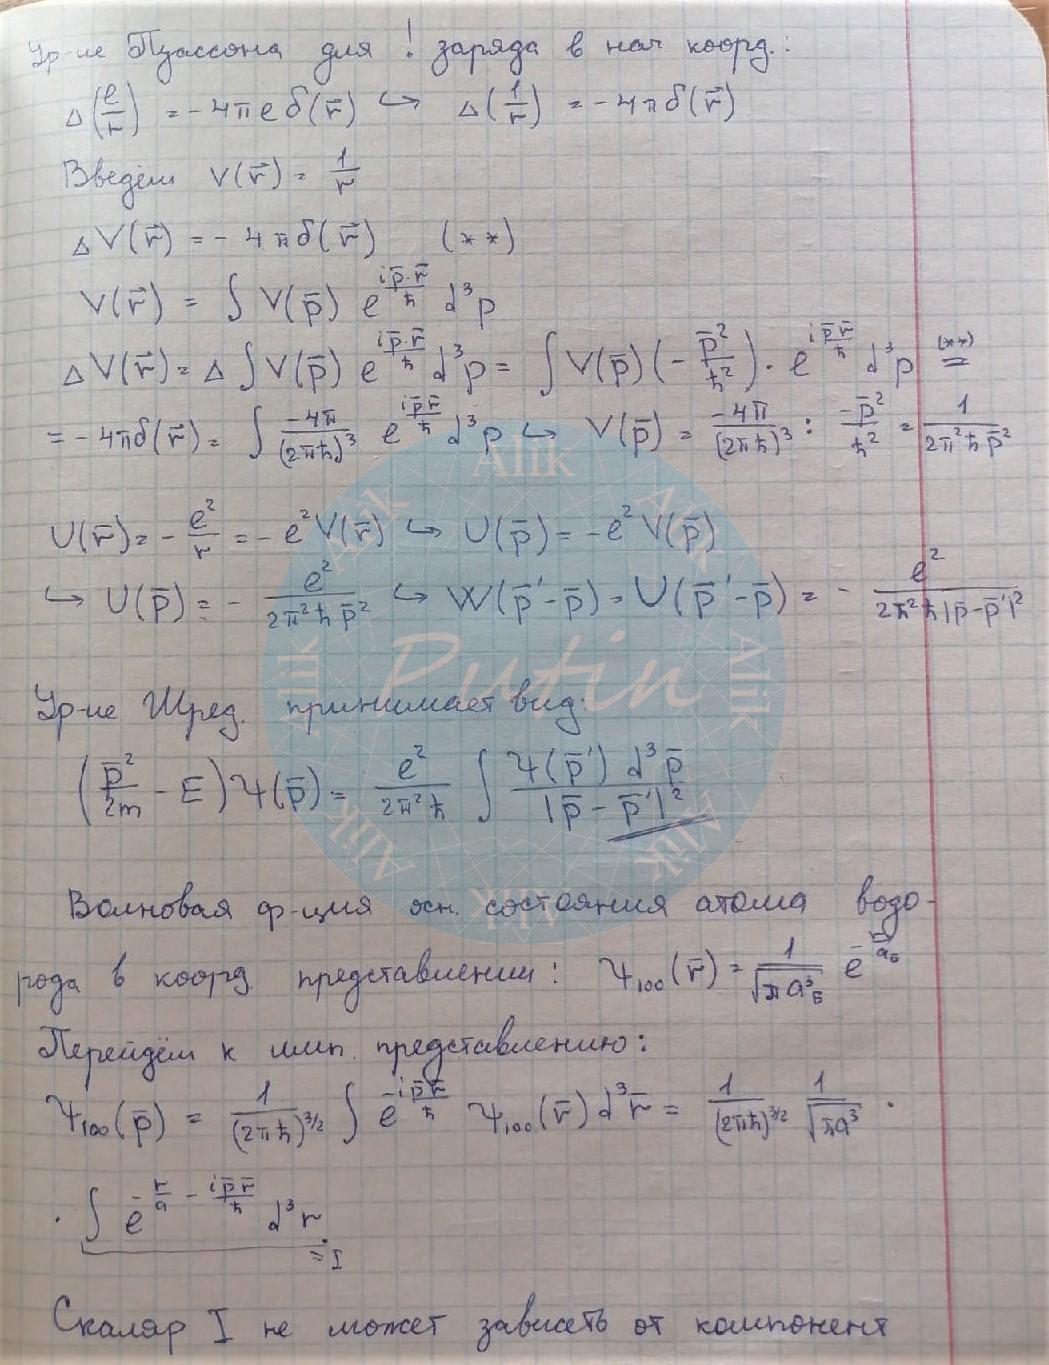 Ур-ие Пуассона для ! заряда в нач коорд.:
Δ(e/r) = -4πeδ(r⃗) ↪ Δ(1/r) = -4πδ(r⃗)
Введём V(r⃗) = 1/r
ΔV(r⃗) = -4πδ(r⃗) (**)
V(r⃗) = ∫ V(p̄) e^{i p̄·r̄/ħ} d³p
ΔV(r⃗) = Δ ∫ V(p̄) e^{i p̄·r̄/ħ} d³p = ∫ V(p̄) (- p̄²/ħ²) · e^{i p̄ r̄/ħ} d³p (**)=
= -4πδ(r⃗) = ∫ -4π/(2πħ)³ e^{i p̄ r̄/ħ} d³p ↪ V(p̄) = -4π/(2πħ)³ : -p̄²/ħ² = 1/(2π²ħp̄²)
U(r̄) = - e²/r = - e²V(r̄) ↪ U(p̄) = -e²V(p̄)
↪ U(p̄) = - e²/(2π²ħp̄²) ↪ W(p̄'-p̄) = U(p̄'-p̄) = - e²/(2π²ħ|p̄-p̄'|²)
Ур-ие Шред. принимает вид:
(p̄²/2m - E) Ψ(p̄) = e²/(2π²ħ) ∫ Ψ(p̄') d³p̄ / |p̄ - p̄'|²
Волновая ф-ция осн. состояния атома водо-
рода в коорд представлении: Ψ₁₀₀(r̄) = 1/√(πa³_Б) e^{-r/a_Б}
Перейдём к имп. представлению:
Ψ₁₀₀(p̄) = 1/(2πħ)^{3/2} ∫ e^{-i p̄ r̄/ħ} Ψ₁₀₀(r̄) d³r̄ = 1/(2πħ)^{3/2} 1/√(πa³) ·
· ∫ e^{-r/a - i p̄ r̄/ħ} d³r
= I
Скаляр I не может зависеть от компонент
Alik
Alik
Alik
Alik
Alik
Alik
Alik
Alik
Putin